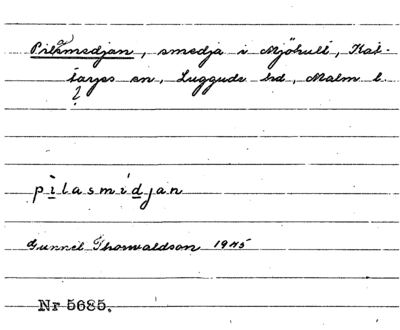 Pilasmedjan, smedja i Mjöhult, Kat-
tarps sn, Luggude hd, Malm l.
?
pilasmidjan
Gunnel Thorwaldson 1945
Nr 5685.